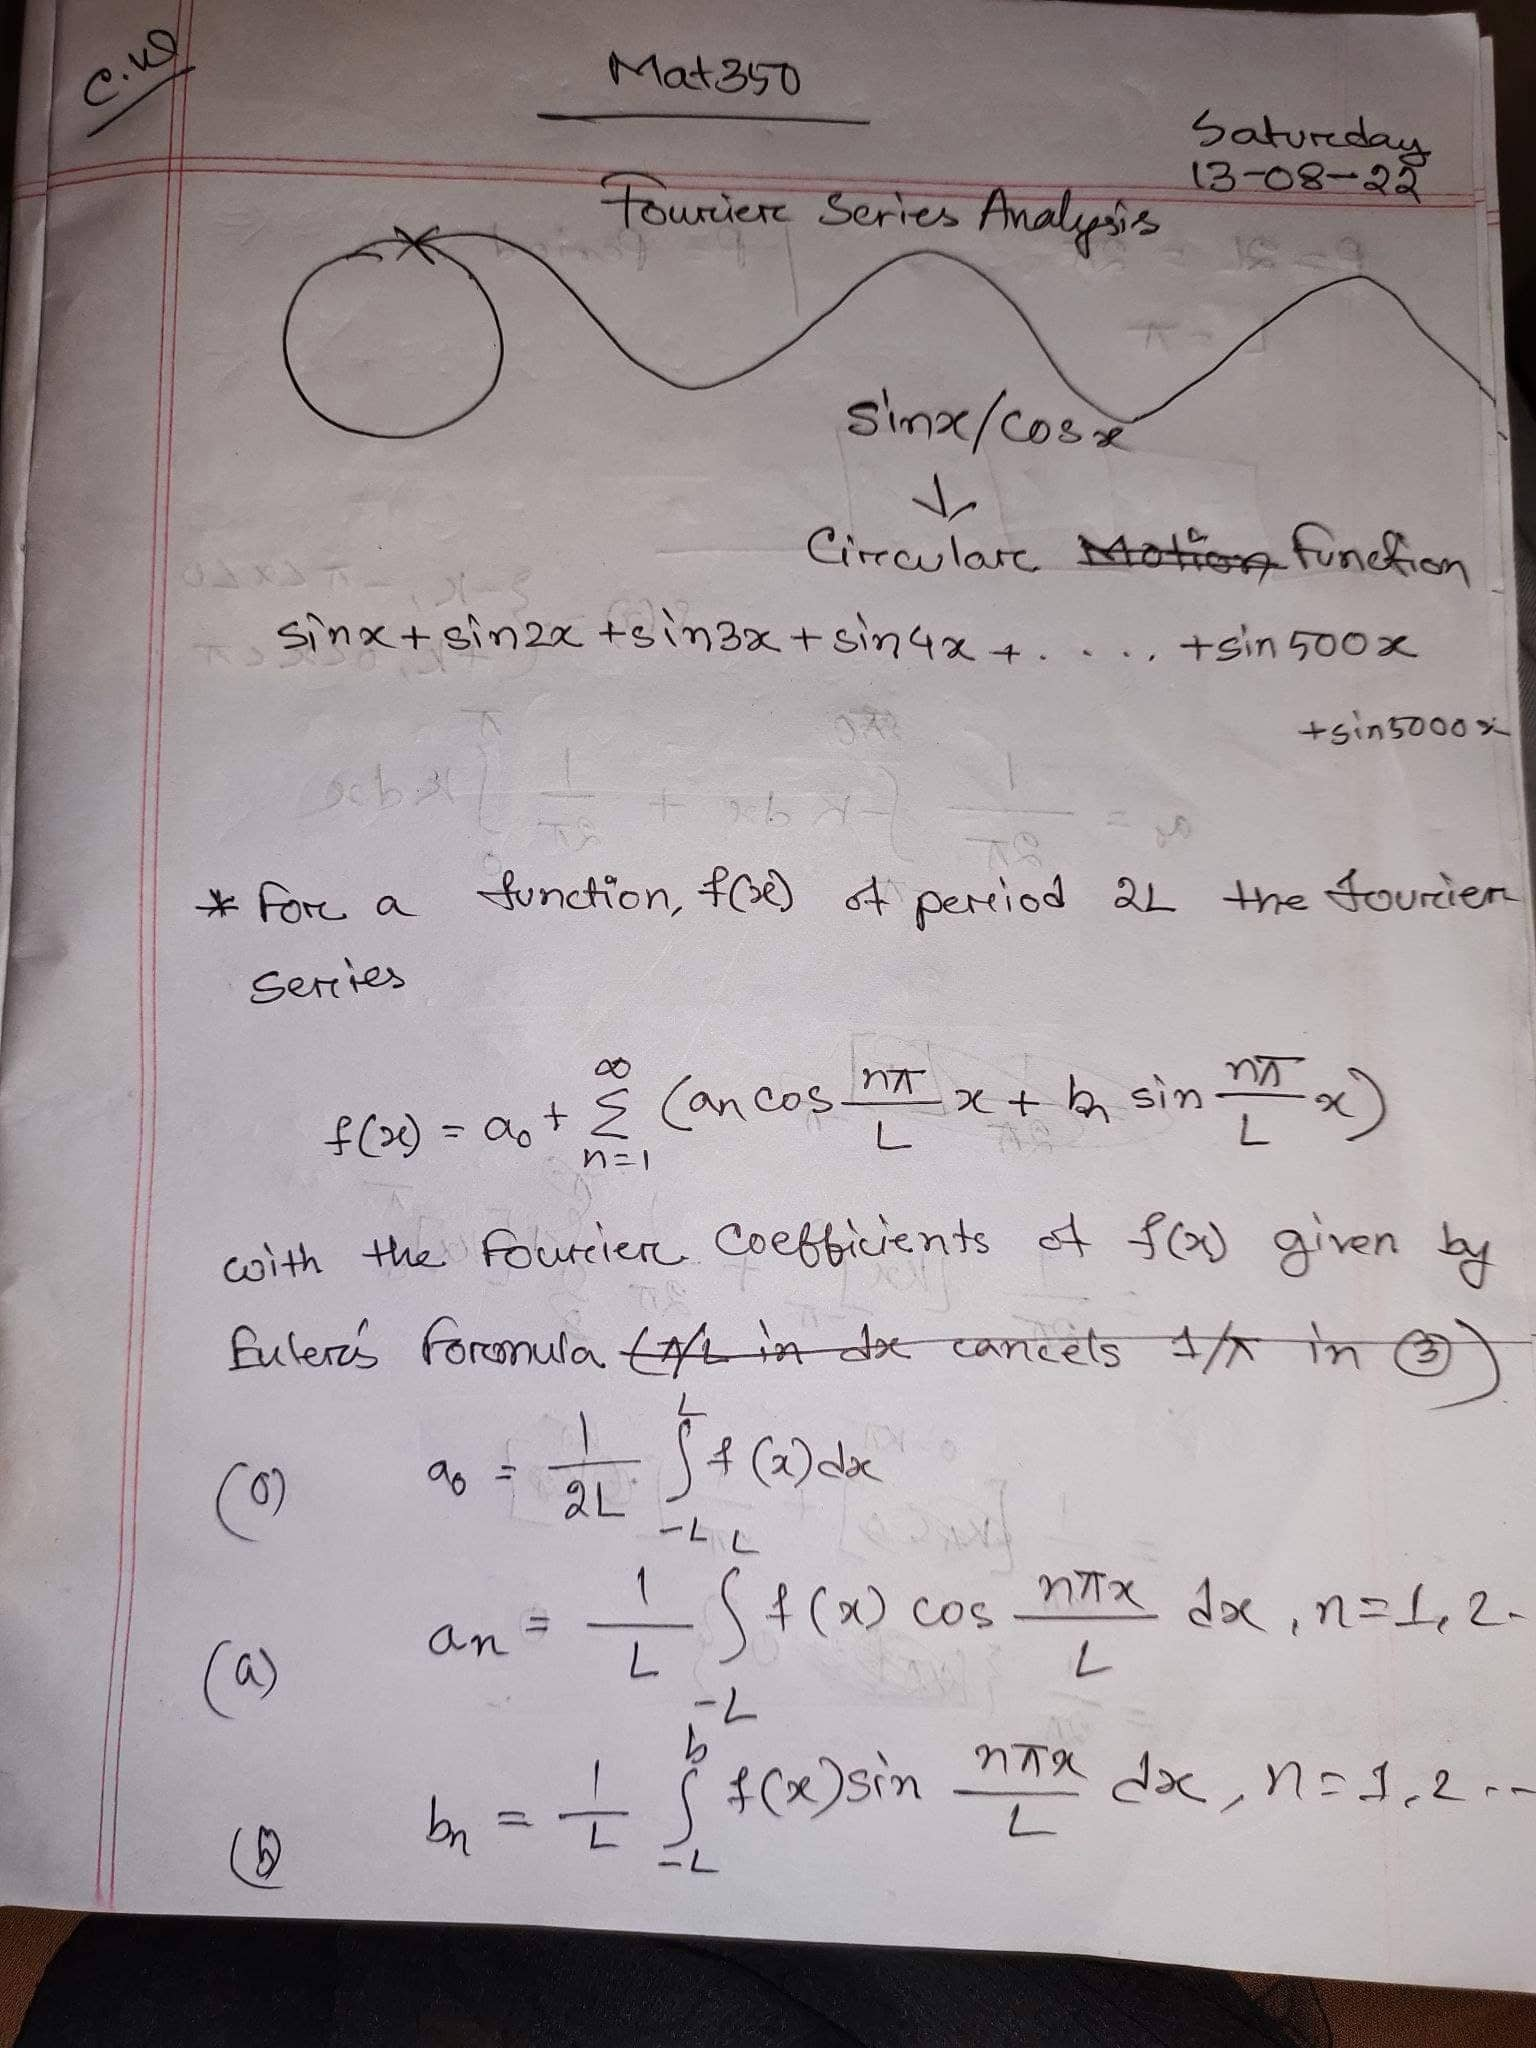 C.W
Mat350
Saturday
13-08-22
Fourier Series Analysis
sinx/cosx
↓
Circular Motion function
sinx + sin2x + sin3x + sin4x + ..... + sin500x
+ sin5000x
* For a function, f(x) of period 2L the fourier
series
f(x) = a₀ + ∑_{n=1}^{∞} (an cos nπ/L x + bn sin nπ/L x)
with the Fourier Coefficients of f(x) given by
Euler's formula (π/L in dx cancels 1/π in ③)
(0) a₀ = 1/2L ∫_{-L}^{L} f(x)dx
(a) an = 1/L ∫_{-L}^{L} f(x) cos nπx/L dx, n=1,2-
(b) bn = 1/L ∫_{-L}^{b} f(x) sin nπx/L dx, n=1,2--